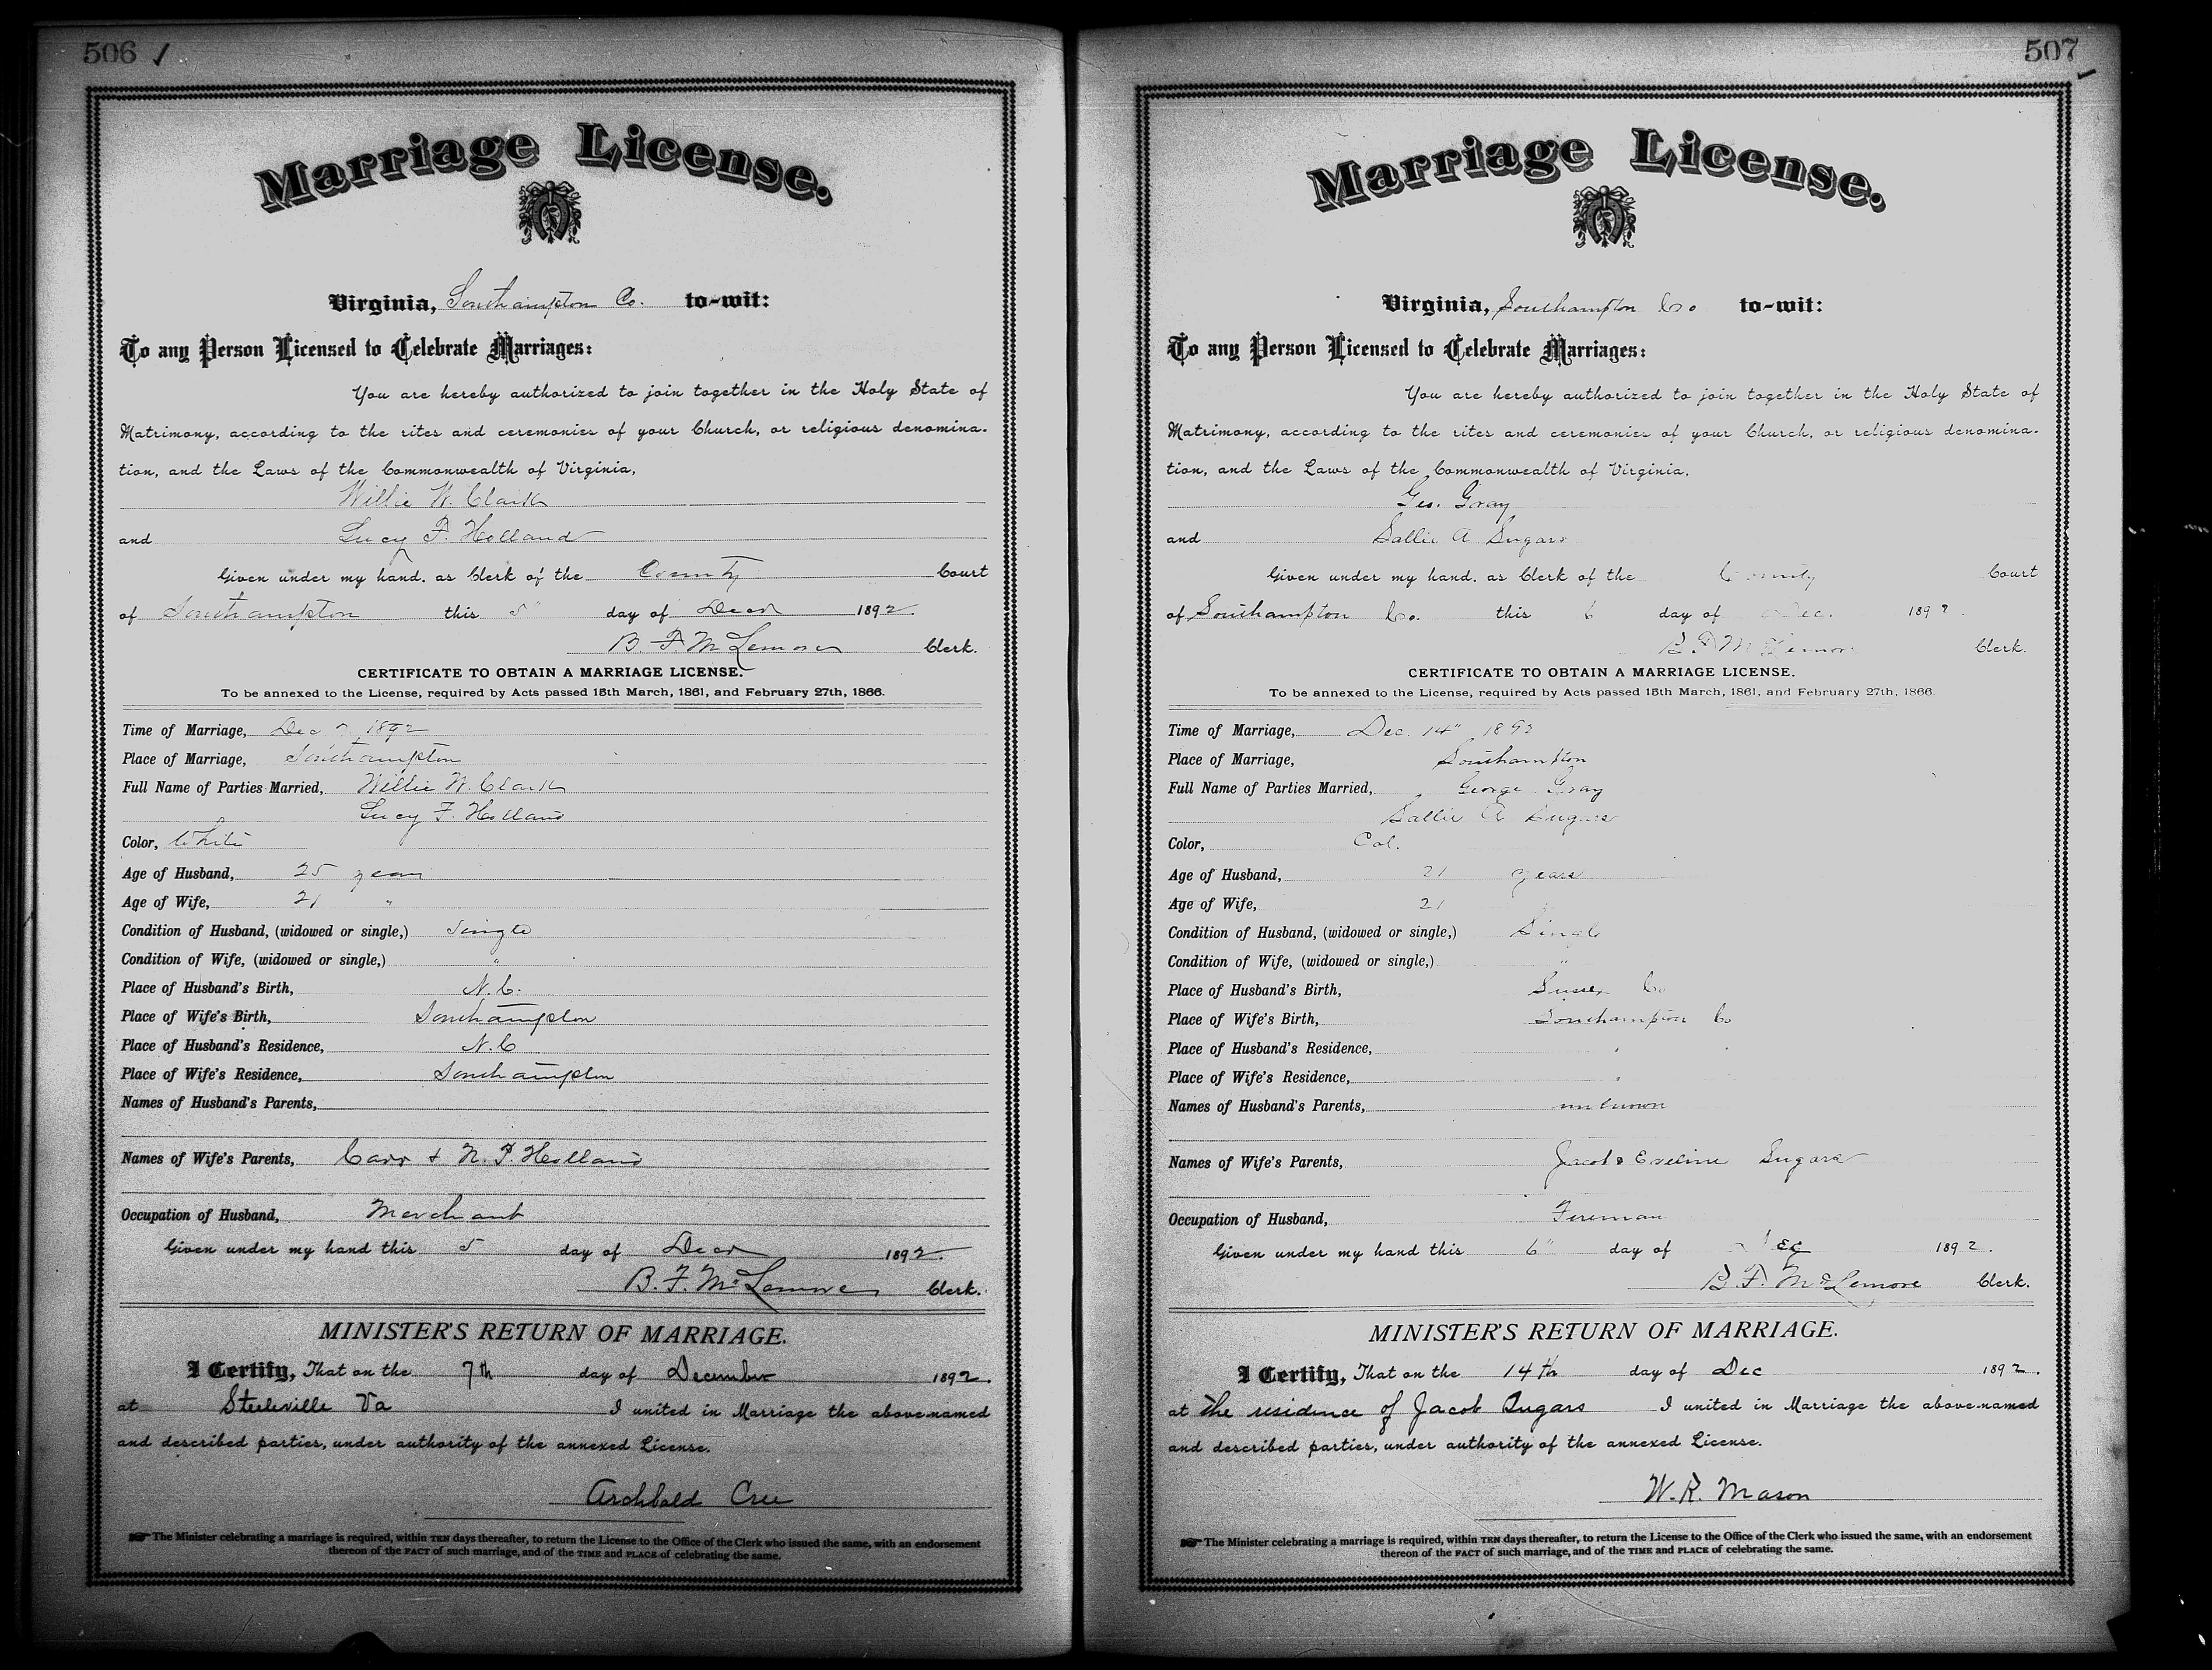 506
Marriage License.
Virginia, Southampton Co. to-wit:
To any Person Licensed to Celebrate Marriages:
You are hereby authorized to join together in the Holy State of
Matrimony, according to the rites and ceremonies of your Church, or religious denomina-
tion, and the Laws of the Commonwealth of Virginia,
Willie W. Clark
and Lucy F. Holland
Given under my hand. as Clerk of the County Court
of Southampton this 5" day of Decr 1892.
B. F. McLemore Clerk.
CERTIFICATE TO OBTAIN A MARRIAGE LICENSE.
To be annexed to the License, required by Acts passed 15th March, 1861, and February 27th, 1866.
Time of Marriage, Dec 7 1892
Place of Marriage, Southampton
Full Name of Parties Married, Willie W. Clark
Lucy F. Holland
Color, White
Age of Husband, 25 years
Age of Wife, 21 "
Condition of Husband, (widowed or single,) Single
Condition of Wife, (widowed or single,) "
Place of Husband's Birth, N. C.
Place of Wife's Birth, Southampton
Place of Husband's Residence, N. C
Place of Wife's Residence, Southampton
Names of Husband's Parents,
Names of Wife's Parents, Carr & N. F. Holland
Occupation of Husband, Merchant
Given under my hand this 5 day of Decr 1892.
B. F. McLemore Clerk.
MINISTER'S RETURN OF MARRIAGE.
I Certify, That on the 7th day of December 1892.
at Steeleville Va I united in Marriage the above-named
and described parties, under authority of the annexed License.
Archbald Cree
The Minister celebrating a marriage is required, within TEN days thereafter, to return the License to the Office of the Clerk who issued the same, with an endorsement
thereon of the FACT of such marriage, and of the TIME and PLACE of celebrating the same.
507
Marriage License.
Virginia, Southampton Co to-wit:
To any Person Licensed to Celebrate Marriages:
You are hereby authorized to join together in the Holy State of
Matrimony, according to the rites and ceremonies of your Church, or religious denomina-
tion, and the Laws of the Commonwealth of Virginia,
Geo. Gray
and Sallie A Sugars
Given under my hand. as Clerk of the County Court
of Southampton Co. this 6 day of Dec. 1892.
B F McLemore Clerk.
CERTIFICATE TO OBTAIN A MARRIAGE LICENSE.
To be annexed to the License, required by Acts passed 15th March, 1861, and February 27th, 1866.
Time of Marriage, Dec. 14" 1892
Place of Marriage, Southampton
Full Name of Parties Married, George Gray
Sallie A Sugars
Color, Col.
Age of Husband, 21 years
Age of Wife, 21
Condition of Husband, (widowed or single,) Single
Condition of Wife, (widowed or single,) "
Place of Husband's Birth, Sussex Co
Place of Wife's Birth, Southampton Co
Place of Husband's Residence, "
Place of Wife's Residence, "
Names of Husband's Parents, unknown
Names of Wife's Parents, Jacob & Eveline Sugars
Occupation of Husband, Fireman
Given under my hand this 6" day of Dec 1892.
B. F. McLemore Clerk.
MINISTER'S RETURN OF MARRIAGE.
I Certify, That on the 14th day of Dec 1892.
at the residence of Jacob Sugars I united in Marriage the above-named
and described parties, under authority of the annexed License.
W. R. Mason
The Minister celebrating a marriage is required, within TEN days thereafter, to return the License to the Office of the Clerk who issued the same, with an endorsement
thereon of the FACT of such marriage, and of the TIME and PLACE of celebrating the same.